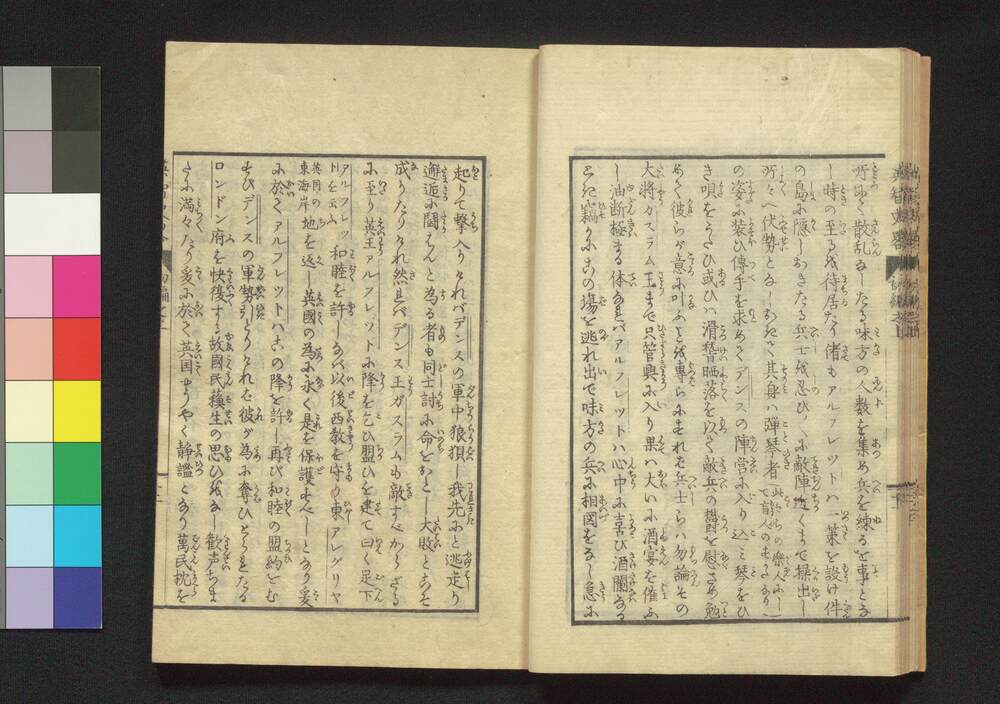 所にて散乱なしたる味方の人数を集め兵を練るを事となし
し時の至るを待居たり偖もアルフレツトハ一策を設け件
の島に隠しおきたる兵士を忍び〳〵に敵陣近くまで操出し
所々へ伏勢となしおきて其身ハ彈琴者
の姿に装ひ傳手を求めてデンスの陣営に入り込ミ琴をひ
き唄をうたひ或ひハ滑稽晒落を以て敵兵の欝を慰さめ勉
めて彼らが意に叶ふを専らにすれバ兵士らハ勿論その
大将ガスラム王まで只管興に入り果ハ大いに酒宴を催ふ
し油断極まる体なれバアルフレツトハ心中に喜び酒闌なる
とき竊かにこの場を逃れ出で味方の兵に相図をなし急に
起りて撃入りけれバデンスの軍中狼狽し我先にと逃走り
邂逅に闘はんと為る者も同士討に命をおとし大敗とこそ
成りたりけれ然れバデンス王ガスラムも敵すべからざる
に至り英王アルフレツトに降を乞ひ盟ひを建て曰く足下
アルフレツトを云ふ 和睦を許しなバ以後西教を守り東アレグリヤ
英国の東海岸 地を返し英國の為に永く是を保護すべしとなり爰
に於てアルフレツトハこの降を許し再び和睦の盟約をむ
すびデンスの軍勢引とりけれバ彼が為に奪ひとられたる
ロンドン府を快復する故國民蘓生の思ひをなし歓声ちま
たに満々たり爰に於て英国やうやく静謐となり萬民枕を